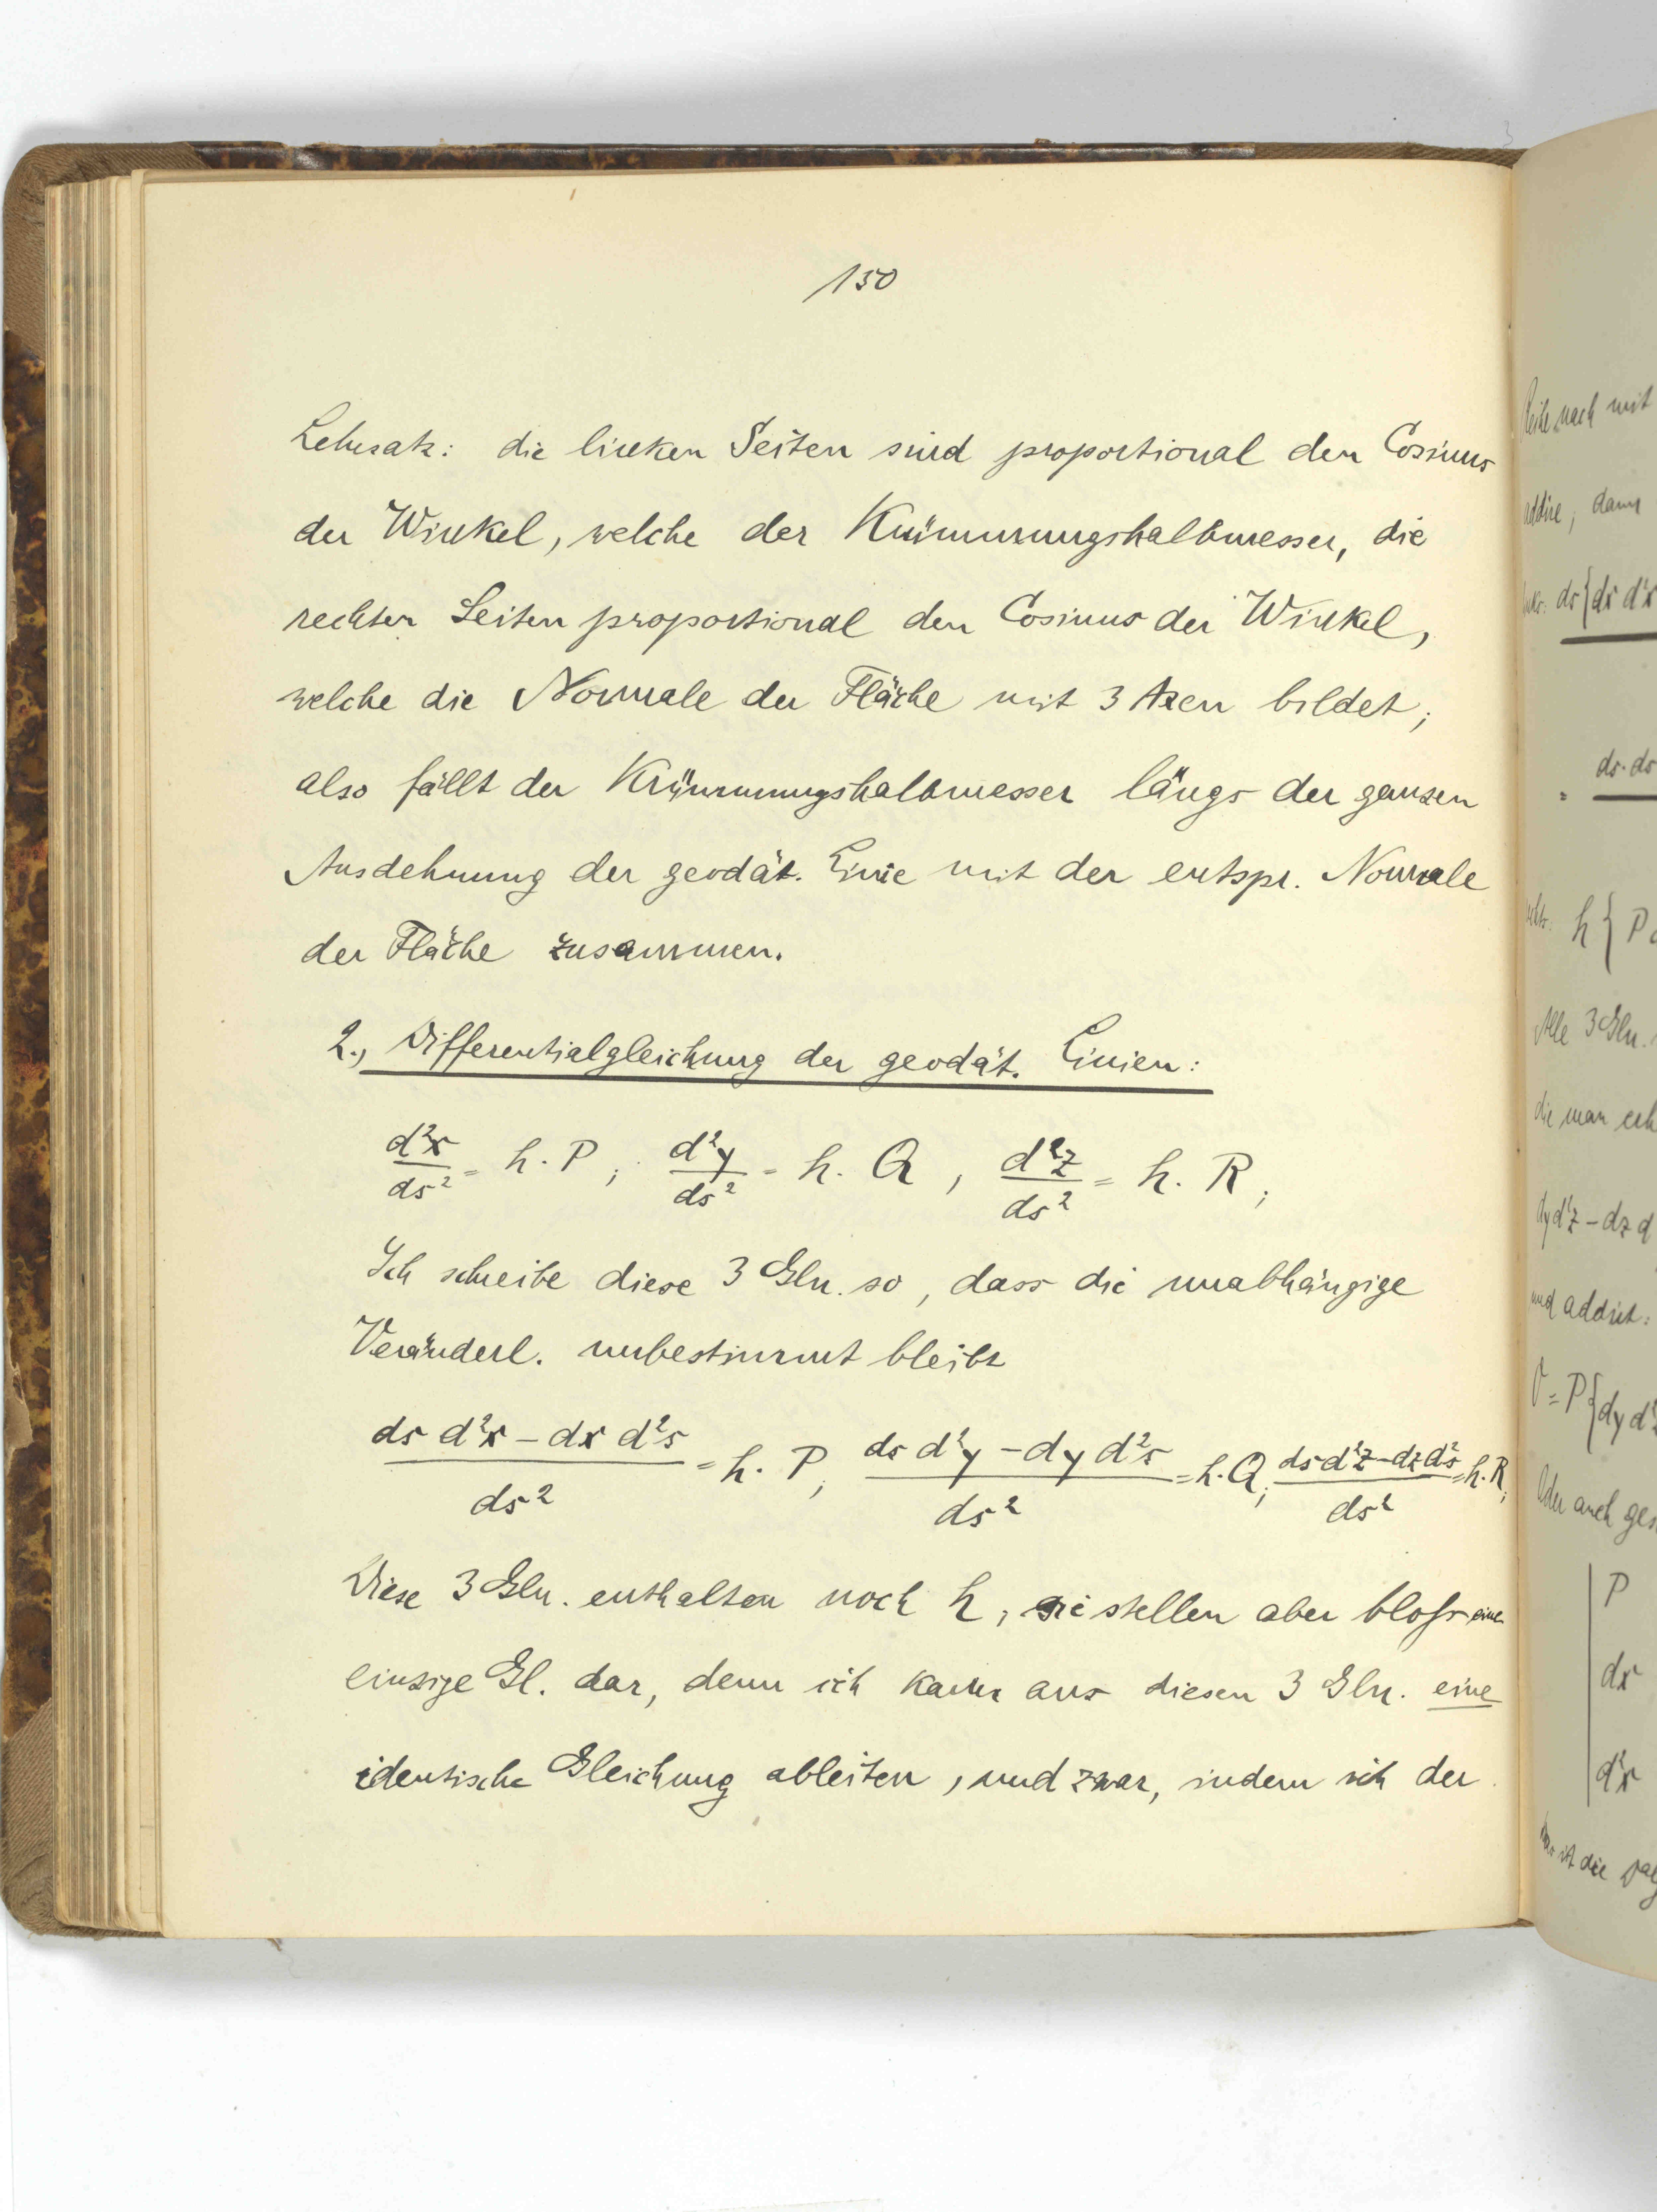 150
Lehrsatz: die linken Seiten sind proportional den Cosinus
der Winkel, welche der Krümmungshalbmesser, die
rechten Seiten proportional den Cosinus der Winkel,
welche die Normale der Fläche mit 3 Axen bildet;
also fällt der Krümmungshalbmesser längs der ganzen
Ausdehnung der geodät. Linie mit der entspr. Normale
der Fläche zusammen.
2., Differentialgleichung der geodät. Linien:
d²x/ds² = h. P; d²y/ds² = h. Q, d²z/ds² = h. R;
Ich schreibe diese 3 Gln. so, dass die unabhängige
Veränderl. unbestimmt bleibt
(ds d²x – dx d²s)/ds² = h. P; (ds d²y – dy d²s)/ds² = h. Q; (ds d²z – dz d²s)/ds² = h. R;
Diese 3 Gln. enthalten noch h, sie stellen aber bloss eine
einzige Gl. dar, denn ich kann aus diesen 3 Gln. eine
identische Gleichung ableiten, und zwar, indem ich der
nach mit
addire, dann
ds {ds d²x
ds. ds
h { P
Alle 3 Gln.
die man
dy d²z – dz d
und addirt:
0 = P {dy d²z
Oder auch
P
dx
d²x
ist die